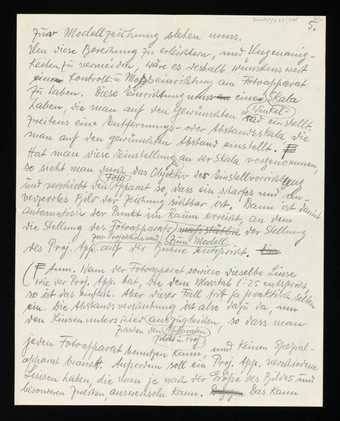 5.
zur Modellzeichnung stehen muss.
Um diese Berechnung zu erleichtern, und Ungenauig-
keiten zu vermeiden, wäre es deshalb wünschenswert
eine Kontroll u Messeinrichtung am Fotoapparat
zu haben. Diese Einrichtung muss eine Skala
haben, die man auf den gewünschten Winkel einstellt
zweitens eine Entfernungs- oder Abstandsskala die
man auf den gewünschten Abstand einstellt.
Hat man diese Einstellung an der Skala vorgenommen,
so sieht man durch das Objektiv der Einstellvorrichtung
und verschiebt den Foto Apparat so, dass ein scharfes und
Bild der Zeichnung sichtbar ist. Dann ist damit
automatisch der Punkt im Raum erreicht, an dem
die Stellung des Fotoapparates der Stellung
zum Modell
des Proj. App. auf der Bühne entspricht.
(F Anm. Wenn der Fotoapparat sowieso dieselbe Linse
wie der Proj. App. hat, die dem Maßstab 1:25 entspricht
so ist das einfach. Aber dieser Fall tritt ja praktisch selten
ein. Die Abstandsvorrichtung ist also dafür da, um
den Linsenunterschied auszugleichen, so dass man
zwischen dem
jeden Fotoapparat benutzen kann, und keinen Spezial-
apparat braucht. Außerdem soll ein Proj. App. verschiedene
Linsen haben, die man je nach der Größe des Bildes und
besonderen Zwecken, auswechseln kann. Das kann